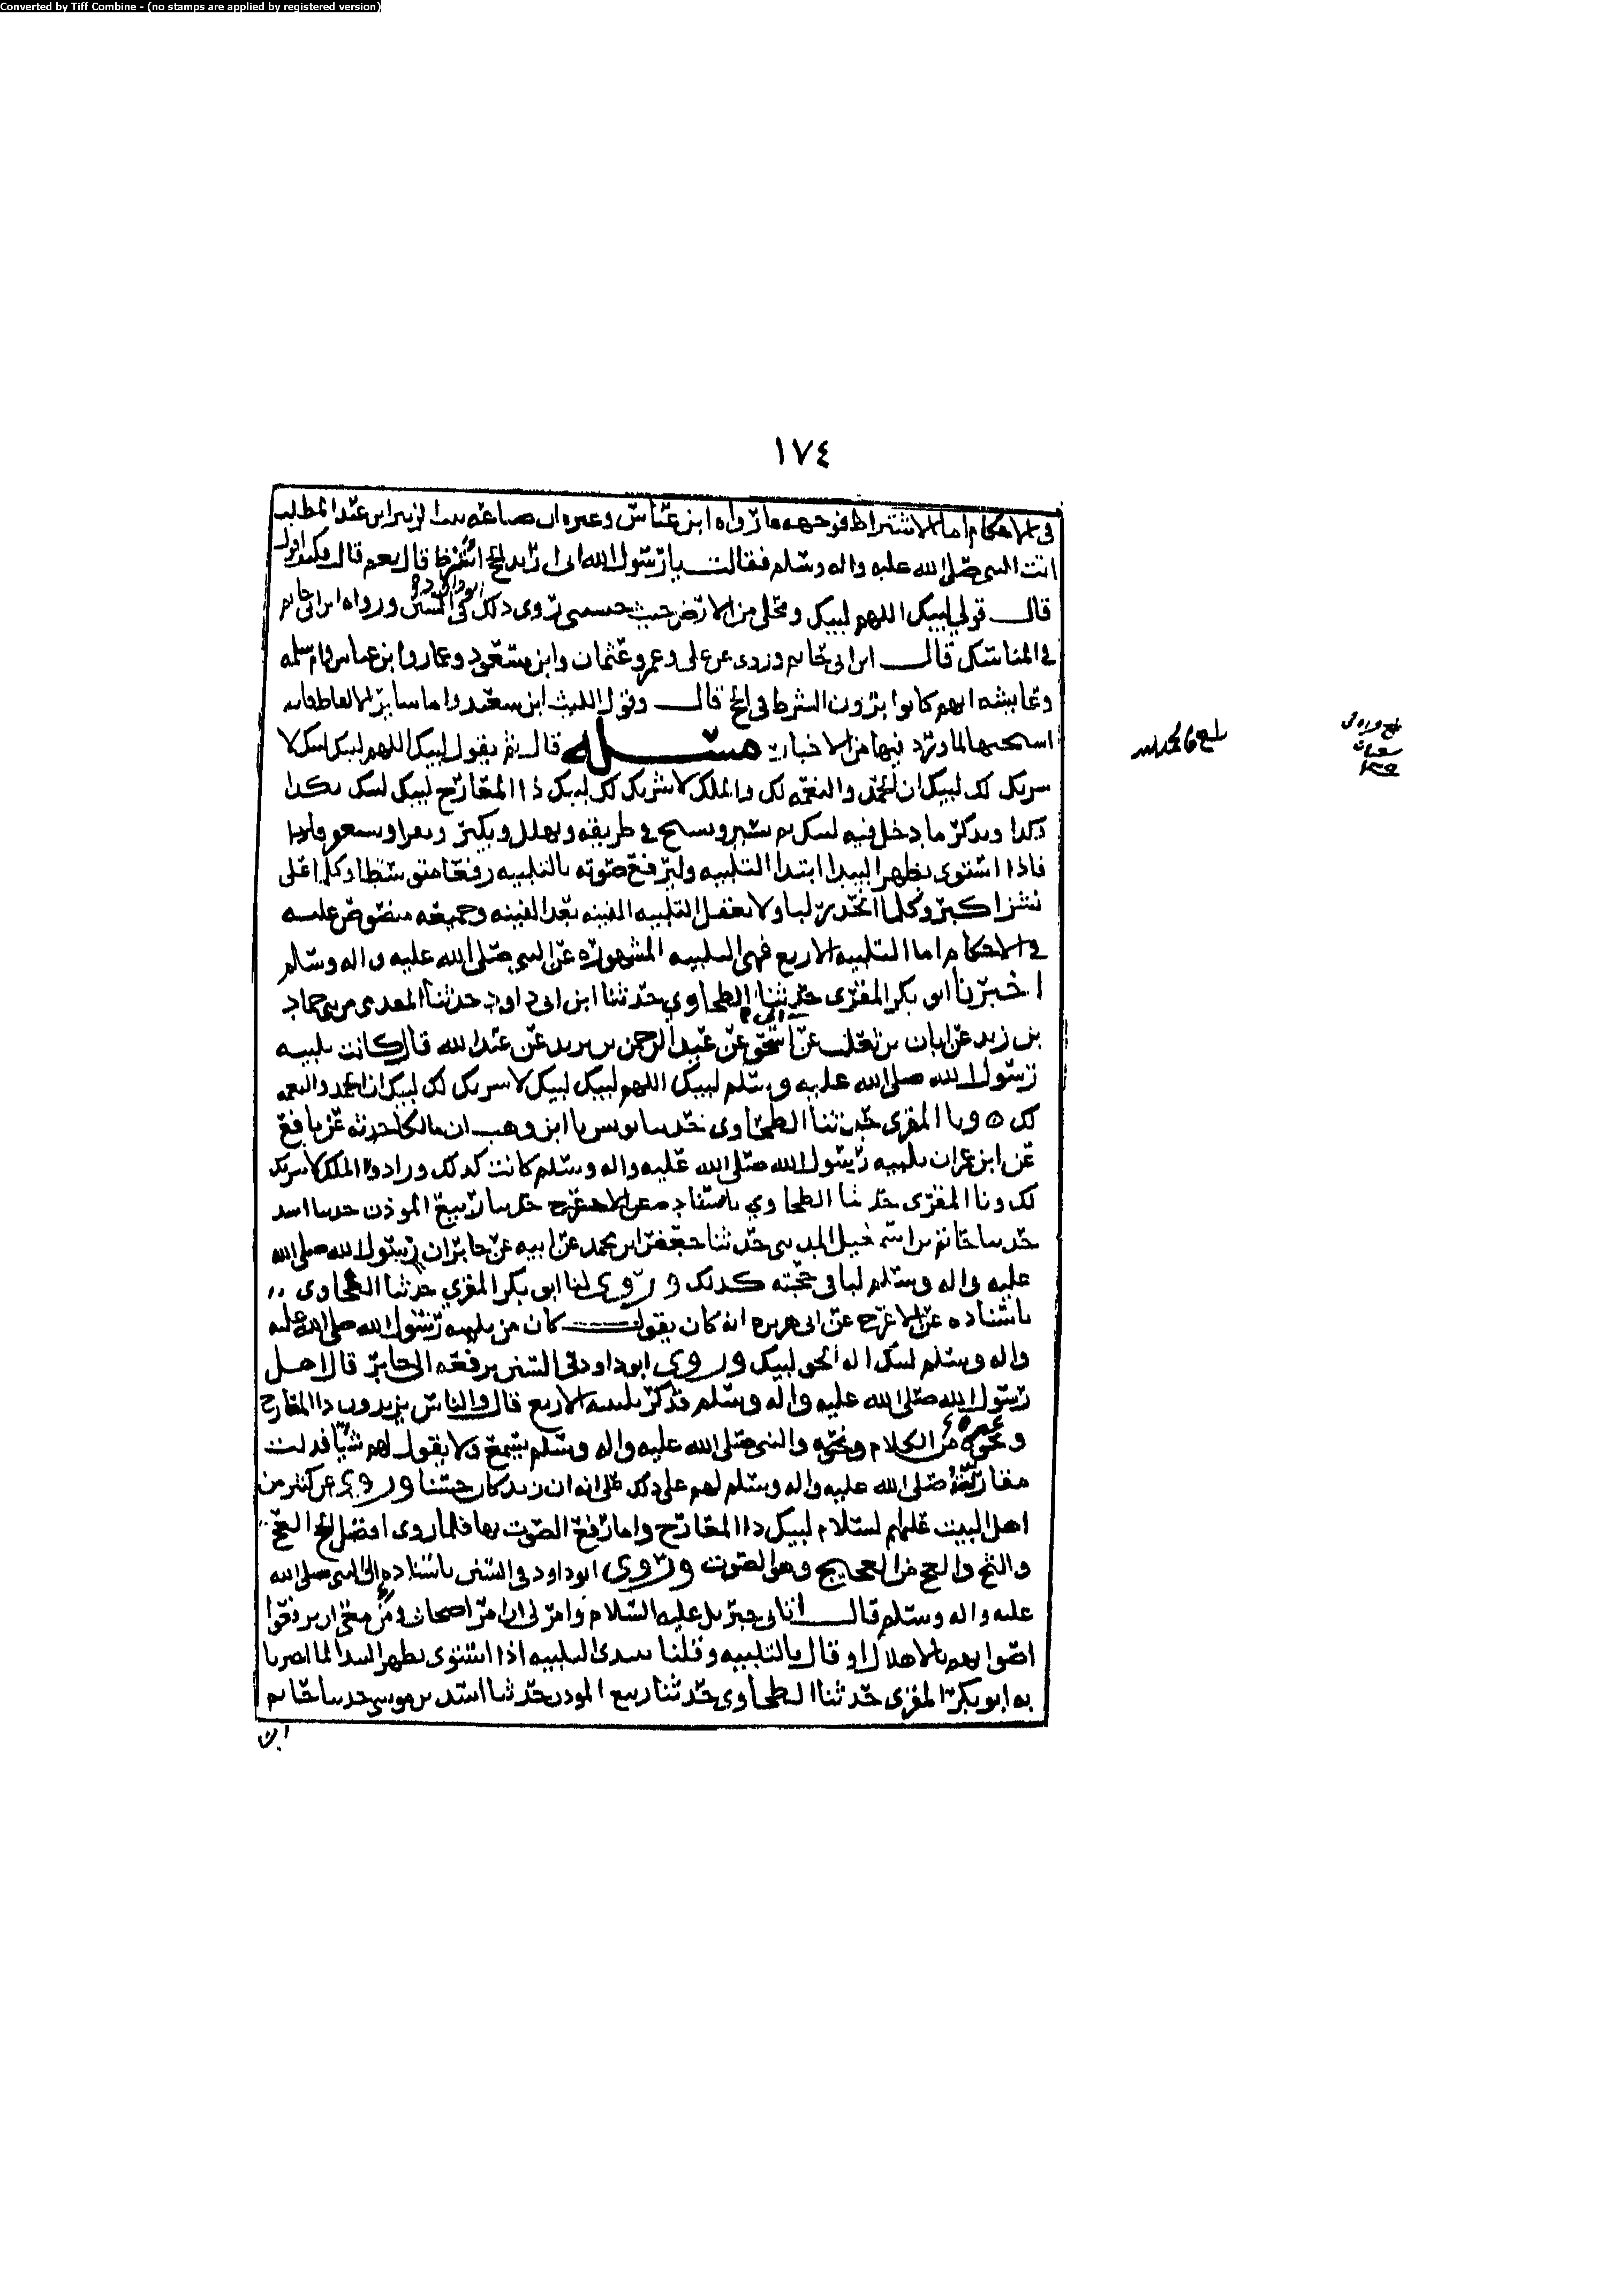 Converted by Tiff Combine - (no stamps are applied by registered version)
١٧٤
في الاحكام اما الاشتراط فوجهه ما رواه ابن عباس وغيره ان ضباعة بنت الزبير ابن عبد المطلب
اتت النبي صلى الله عليه واله وسلم فقالت يا رسول الله اني اريد الحج اشترط قال نعم قالت فكيف اقول
قال قولي لبيك اللهم لبيك ومحلي من الارض حيث حبستني روى ذلك ابو داود في السنن ورواه ابن ابي حاتم
في المناسك قال ابن ابي حاتم وروى عن علي وعمر وعثمان وابن مسعود وعمار وابن عباس وام سلمه
وعايشه انهم كانوا يرون الشرط في الحج قال وقول الليث ابن سعد واما ساير الالفاظ فانه
استحبها لما ورد فيها من الاخبار مسئله قال ثم يقول لبيك اللهم لبيك لبيك لا
شريك لك لبيك ان الحمد والنعمه لك والملك لا شريك لك لبيك ذا المعارج لبيك لبيك بكذا
وكذا ويذكر ما دخل فيه لبيك ثم يسير ويسبح في طريقه ويهلل ويكبر ويقرا ويستغفر
فاذا استوى بظهر البيدا ابتدا التلبيه وليرفع صوته بالتلبيه رفعا متوسطا وكلما علا
نشزا كبر وكلما انحدر لبا ولا يغفل التلبيه الفينه بعد الفينه وجميعه منصوص عليه
في الاحكام اما التلبيه الاربع فهي التلبيه المشهوره عن النبي صلى الله عليه واله وسلم
اخبرنا ابو بكر المقري حدثنا الطحاوي حدثنا ابن ابي داود حدثنا المقدمي حماد
بن زيد عن ابان بن تغلب عن ابي اسحق عن عبد الرحمن بن يزيد عن عبد الله قال كانت تلبيه
رسول الله صلى الله عليه وسلم لبيك اللهم لبيك لبيك لا شريك لك لبيك ان الحمد والنعمه
لك ونا المقري حدثنا الطحاوي حدثنا يونس نا ابن وهب ان مالكا حدثه عن نافع
عن ابن عمر ان تلبيه رسول الله صلى الله عليه واله وسلم كانت كذلك وزاد والملك لا شريك
لك ونا المقري حدثنا الطحاوي حدثنا ربيع الموذن حدثنا اسد
حدثنا حاتم بن اسمعيل المديني حدثنا جعفر ابن محمد عن ابيه عن جابر ان رسول الله صلى الله
عليه واله وسلم لبا في حجته كذلك وروى لنا ابو بكر المقري حدثنا الطحاوي
باسناده عن الاعرج عن ابي هريره انه كان يقول كان من تلبيه رسول الله صلى الله عليه
واله وسلم لبيك اله الحق لبيك وروى ابو داود في السنن يرفعه الى جابر قال اهل
رسول الله صلى الله عليه واله وسلم فذكر تلبيه الاربع قال والناس يزيدون ذا المعارج
ونحوه من الكلام والنبي صلى الله عليه واله وسلم يسمع ولا يقول لهم شيئا فدلت
مقارته صلى الله عليه واله وسلم لهم على ذلك على انه ان زيد كان حسنا وروى عن كثير من
اهل البيت عليهم السلام لبيك ذا المعارج واما رفع الصوت بها فلما روى افضل الحج العج
والثج والعج من العجيج وهو الصوت وروى ابو داود في السنن باسناده الى النبي صلى الله
عليه واله وسلم قال اتاني جبريل عليه السلام وامرني ان امر اصحابي ومن معي ان يرفعوا
اصواتهم بالاهلال او قال بالتلبيه وقلنا يبتدئ التلبيه اذا استوى بظهر البيدا لما اخبرنا
به ابو بكر المقري حدثنا الطحاوي حدثنا ربيع الموذن حدثنا اسد بن موسى حدثنا حاتم